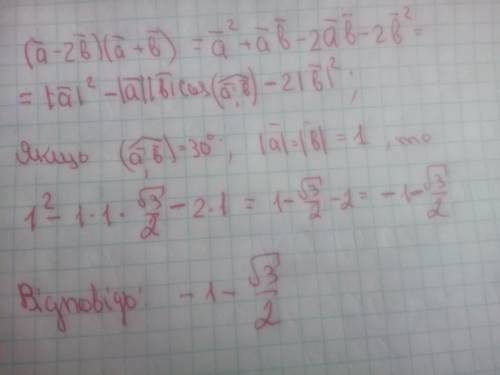 (a̅ - 2b̅)(a̅ + b̅) = a̅² + a̅b̅ - 2a̅b̅ - 2b̅² =
= |a̅|² - |a̅||b̅|cos(a̅,b̅) - 2|b̅|²;
Якщо (a̅,b̅) = 30°, |a̅| = |b̅| = 1, то
1² - 1·1·√3/2 - 2·1 = 1 - √3/2 - 2 = -1 - √3/2
Відповідь: -1 - √3/2